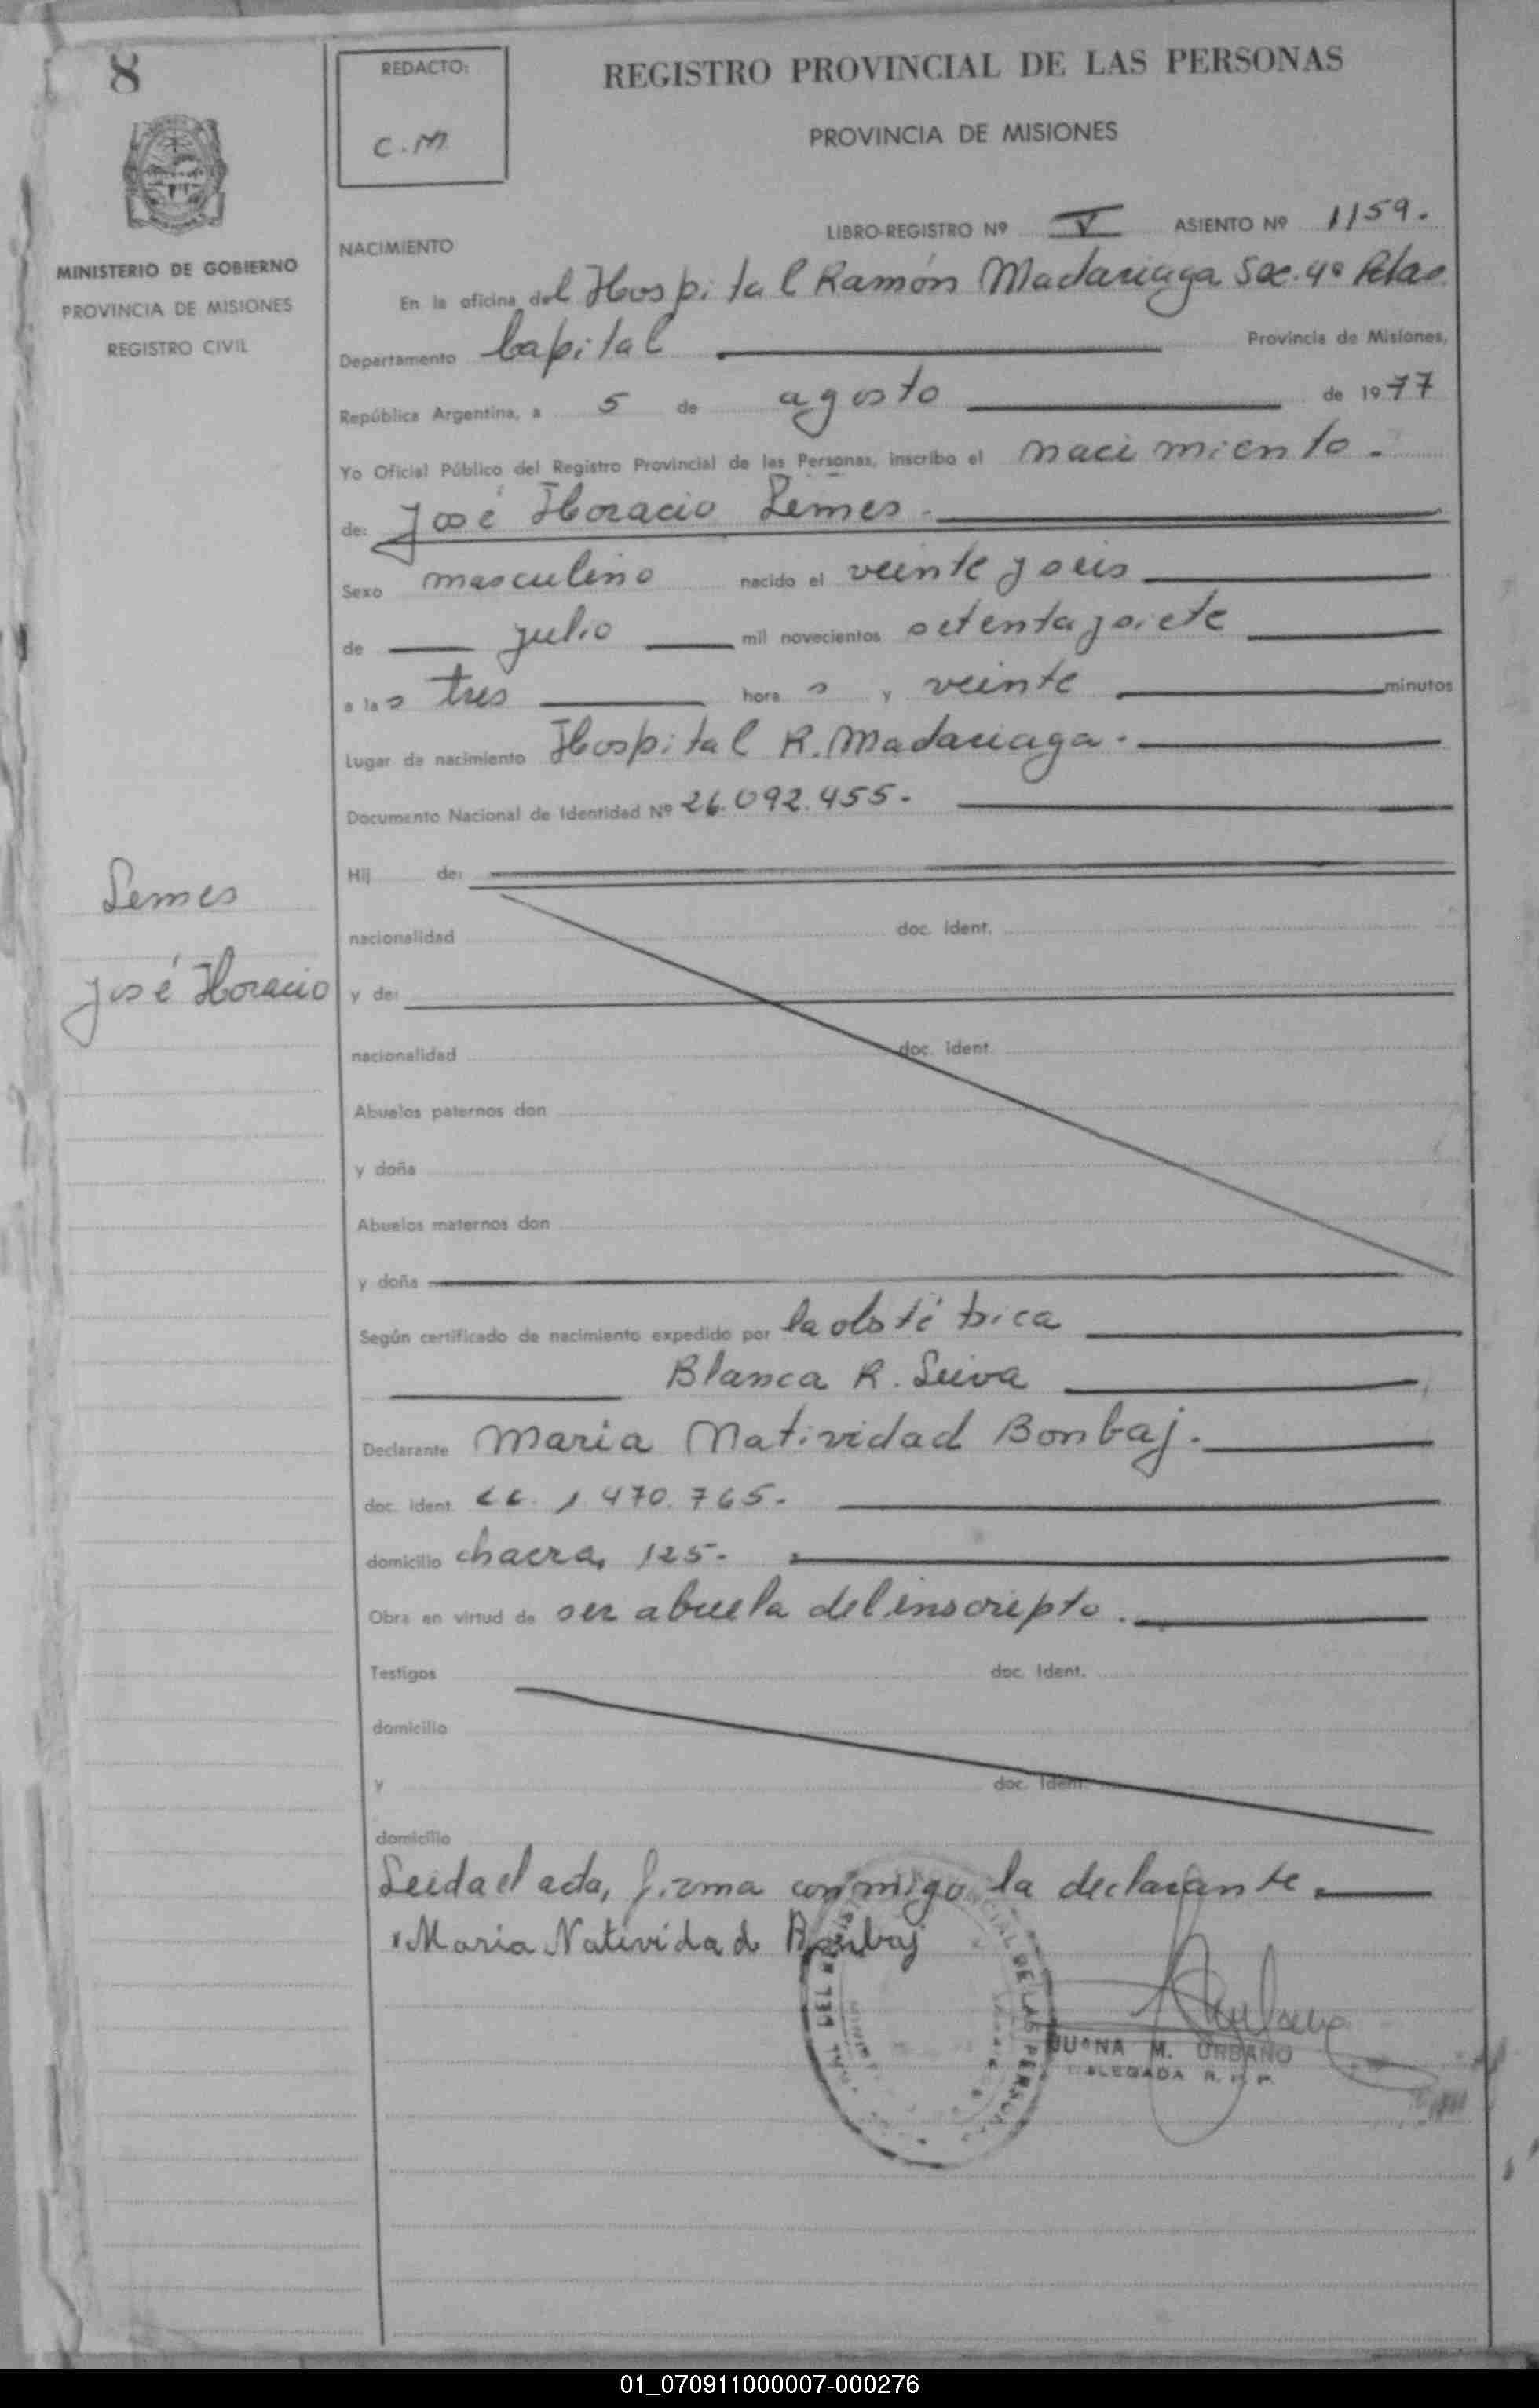 8
REDACTO:
C.M.
REGISTRO PROVINCIAL DE LAS PERSONAS
PROVINCIA DE MISIONES
MINISTERIO DE GOBIERNO
PROVINCIA DE MISIONES
REGISTRO CIVIL
LIBRO-REGISTRO Nº V ASIENTO Nº 1159.
NACIMIENTO
En la oficina del Hospital Ramón Madariaga Sec. 4ª Pdas
Departamento Capital Provincia de Misiones,
República Argentina, a 5 de agosto de 1977
Yo Oficial Público del Registro Provincial de las Personas, inscribo el nacimiento.
de: José Horacio Lemes.
Sexo masculino nacido el veinte y seis
de julio mil novecientos setenta y siete
a las tres horas y veinte minutos
Lugar de nacimiento Hospital R. Madariaga.
Documento Nacional de Identidad Nº 26.092.455.
Hij de:
Lemes
José Horacio
nacionalidad doc. ident.
y de:
nacionalidad doc. ident.
Abuelos paternos don
y doña
Abuelos maternos don
y doña
Según certificado de nacimiento expedido por la obstétrica
Blanca R. Leiva
Declarante Maria Natividad Bonbaj.
doc. ident. 1470.765.
domicilio chacra, 125.
Obra en virtud de ser abuela del inscripto.
Testigos doc. Ident.
domicilio
y doc. Ident.
domicilio
Leida el acta, firma conmigo la declarante.
Maria Natividad Bonbaj
JUANA M. URBANO
DELEGADA R. P. P.
01_070911000007-000276